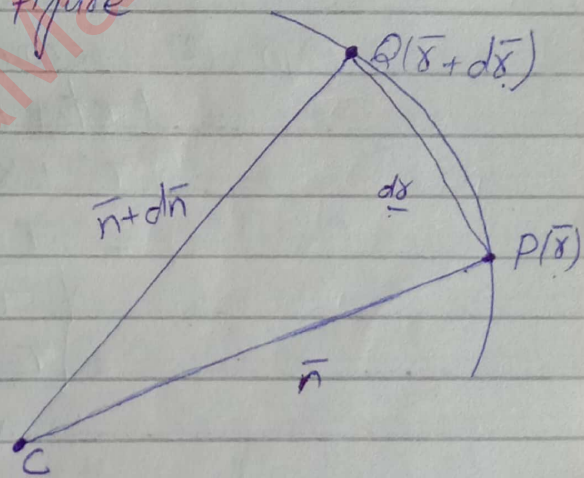 Figure
Q(r̄ + dr̄)
n̄+dn̄
dr
P(r̄)
n̄
C